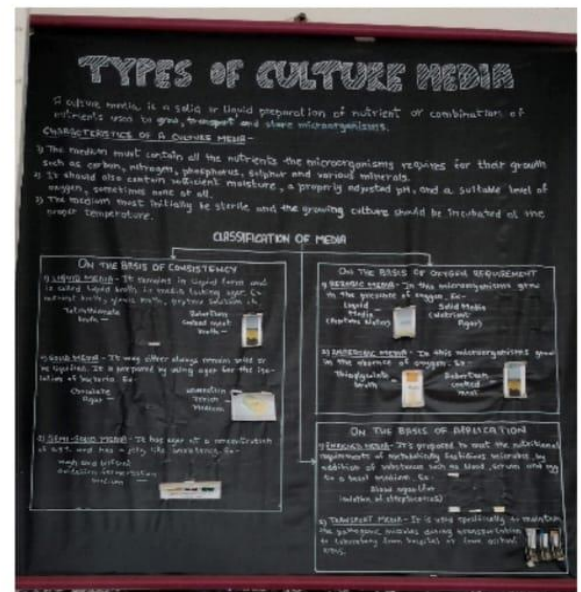 TYPES OF CULTURE MEDIA
A culture media is a solid or liquid preparation of nutrient or combination of
nutrients used to grow, transport and store microorganisms.
CHARACTERISTICS OF A CULTURE MEDIA-
1) The medium must contain all the nutrients the microorganisms requires for their growth
such as carbon, nitrogen, phosphorus, sulphur and various minerals.
2) It should also contain sufficient moisture, a properly adjusted pH, and a suitable level of
oxygen, sometimes none at all.
3) The medium must initially be sterile and the growing culture should be incubated at the
proper temperature.
CLASSIFICATION OF MEDIA
ON THE BASIS OF CONSISTENCY
1) LIQUID MEDIA- It remains in liquid form and
is called liquid broth is media lacking agar. Ex-
nutrient broth, broth, peptone
Tetrathionate
broth-
Robertson
cooked meat
broth-
2) SOLID MEDIA- It may either always remain solid or
be liquified. It is prepared by using agar for the iso-
lation of bacteria. Ex-
Chocolate
Agar-
Lowenstein
Jensen
Medium
3) SEMI-SOLID MEDIA- It has agar at a concentration
of and has a jelly like consistency. Ex-
Hugh and
oxidation fermentation
medium-
ON THE BASIS OF OXYGEN REQUIREMENT
1) AEROBIC MEDIA- In this microorganisms grow
in the presence of oxygen. Ex-
Liquid
Media
(Peptone Water)
Solid Media
(Nutrient
Agar)
2) ANAEROBIC MEDIA- In this microorganisms grow
in the absence of oxygen. Ex-
Thioglycolate
broth
Robertson
cooked
meat
ON THE BASIS OF APPLICATION
1) ENRICHED MEDIA- It's prepared to meet the nutritional
requirements of metabolically fastidious microbes, by
addition of substances such as blood, serum and egg
to a basal medium. Ex-
Blood agar (for
isolation of streptococcus)
2) TRANSPORT MEDIA- It is used specifically to maintain
the pathogenic microbes during transportation
to laboratory from hospital or from